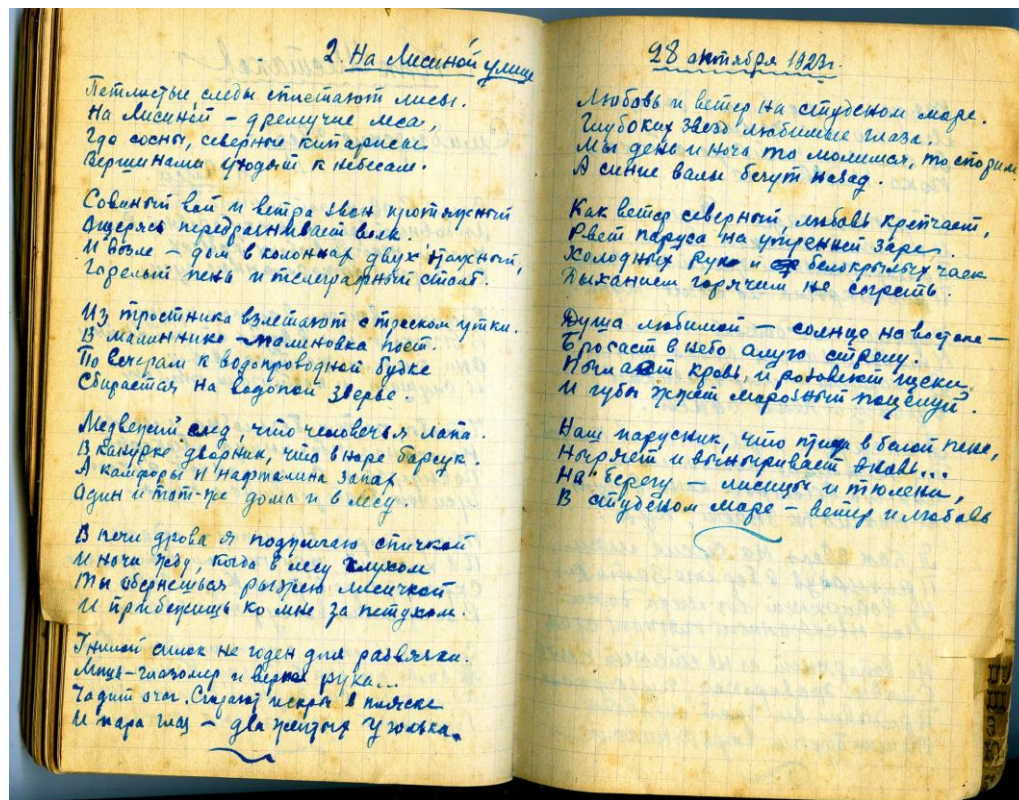 2 На Лисиной улице
Петлистые следы сплетают лисы.
На Лисиной – дремучие леса,
Где сосны, северные кипарисы
Вершинами уходят к небесам.
Совиный вой и ветра звон протяжный
Ощерясь передразнивает волк.
И возле – дом в колоннах двух'тажный,
Горелый пень и телеграфный столб.
Из тростника взлетают с треском утки.
В малиннике – малиновка поёт.
По вечерам к водопроводной будке
Сбирается на водопой зверьё.
Медвежий след, что человечья лапа.
В конурке дворник, что в норе барсук.
А камфоры и нафталина запах
Один и тот-же дома и в лесу.
В печи дрова я поджигаю спичкой
И ночи жду, когда в лесу глухом
Ты обернёшься рыжею лисичкой
И прибежишь ко мне за петухом.
Гнилой силок не годен для развязки.
Лишь глазомер и верная рука...
Чадит очаг. Сгорают искры в пляске
И пара глаз – два жёлтых уголька.
28 октября 1923г.
Любовь и ветер на студёном море.
Глубоких звёзд любимые глаза.
Мы день и ночь то молимся, то спорим
А синие валы бегут назад.
Как ветер северный, любовь крепчает,
Рвёт паруса на утренней заре,
Холодных рук и белокрылых чаек
Дыханием горячим не согреть.
Душа любимой – солнце на востоке –
Бросает в небо алую стрелу.
Пылает кровь и розовеют щеки
И губы жжёт морозный поцелуй.
Наш парусник, что птица в белой пене,
Ныряет и выныривает вновь...
На берегу – лисицы и тюлени,
В студёном море – ветер и любовь